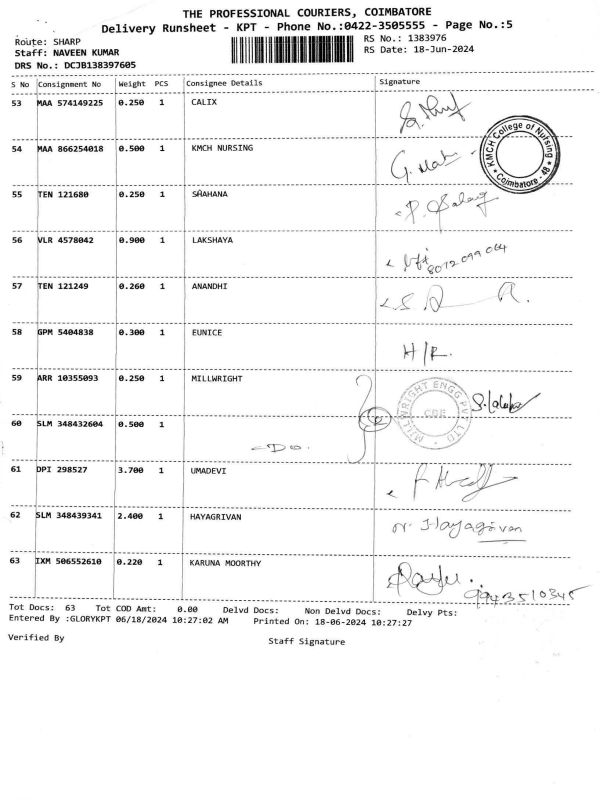 THE PROFESSIONAL COURIERS, COIMBATORE
Delivery Runsheet - KPT - Phone No.:0422-3505555 - Page No.:5
Route: SHARP
Staff: NAVEEN KUMAR
DRS No.: DCJB138397605
RS No.: 1383976
RS Date: 18-Jun-2024
S No Consignment No Weight PCS Consignee Details Signature
53 MAA 574149225 0.250 1 CALIX
54 MAA 866254018 0.500 1 KMCH NURSING
KMCH College of Nursing * Coimbatore - 48 *
55 TEN 121680 0.250 1 SAHANA
56 VLR 4578042 0.900 1 LAKSHAYA
8072 099 064
57 TEN 121249 0.260 1 ANANDHI
58 GPM 5404838 0.300 1 EUNICE
H/R.
59 ARR 10355093 0.250 1 MILLWRIGHT
MILLWRIGHT ENGG PVT LTD
CBE
60 SLM 348432604 0.500 1
-DO.
61 DPI 298527 3.700 1 UMADEVI
62 SLM 348439341 2.400 1 HAYAGRIVAN
Hayagrivan
63 IXM 506552610 0.220 1 KARUNA MOORTHY
9943510345
Tot Docs: 63 Tot COD Amt: 0.00 Delvd Docs: Non Delvd Docs: Delvy Pts:
Entered By :GLORYKPT 06/18/2024 10:27:02 AM Printed On: 18-06-2024 10:27:27
Verified By Staff Signature